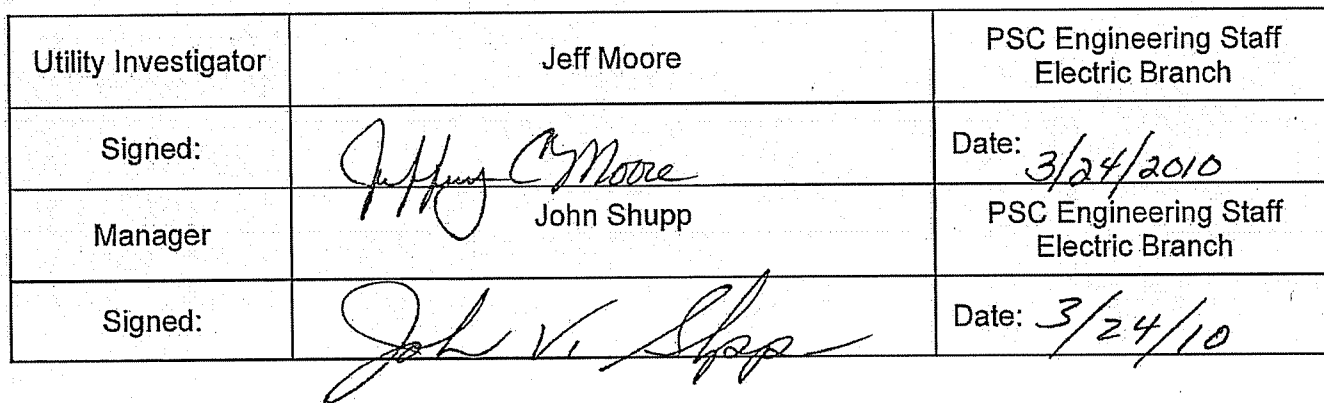 Utility Investigator
Jeff Moore
PSC Engineering Staff
Electric Branch
Signed:
Jeffrey C Moore
Date: 3/24/2010
Manager
John Shupp
PSC Engineering Staff
Electric Branch
Signed:
John V. Shupp
Date: 3/24/10